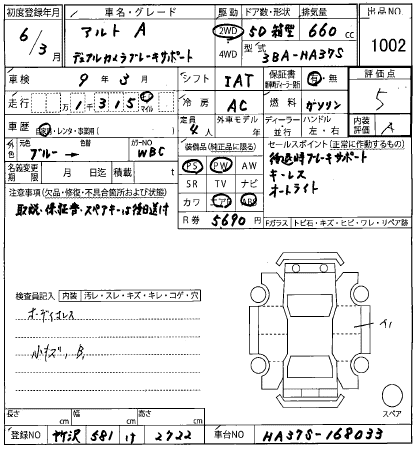 初度登録年月 車名・グレード 駆動 ドア数・形状 排気量 出品NO
6/3月 アルト A 2WD 5D 箱型 660cc 1002
デュアルカメラブレーキサポート 4WD 型式 3BA-HA37S
車検 9年3月 シフト IAT 保証書 有・無 評価点
走行 万1千315 マイル 冷房 AC 燃料 ガソリン 5
車歴 自家用・レンタ・事業用( ) 定員 4人 外車モデル年 ディーラー 並行 ハンドル 左・右 内装評価 A
元色 ブルー→ 色替 カラーNO WBC 装備品(純正品に限る) セールスポイント(正常に作動するもの)
名義変更期限 月 日迄 積載 t PS PW AW 後退時ブレーキサポート
注意事項(欠品・修復・不具合箇所および状態) SR TV ナビ キーレス
取説・保証書・スペアキーは後日送付 カワ エアB ABS オートライト
R券 5690円 Fガラス トビ石・キズ・ヒビ・ワレ・リペア跡
検査員記入 内装 汚レ・スレ・キズ・キレ・コゲ・穴
オーディオレス
小キズ, B,
イ
スペア
長さ cm 幅 cm 高さ cm
登録NO 所沢 581 け 2722 車台NO HA37S-168033